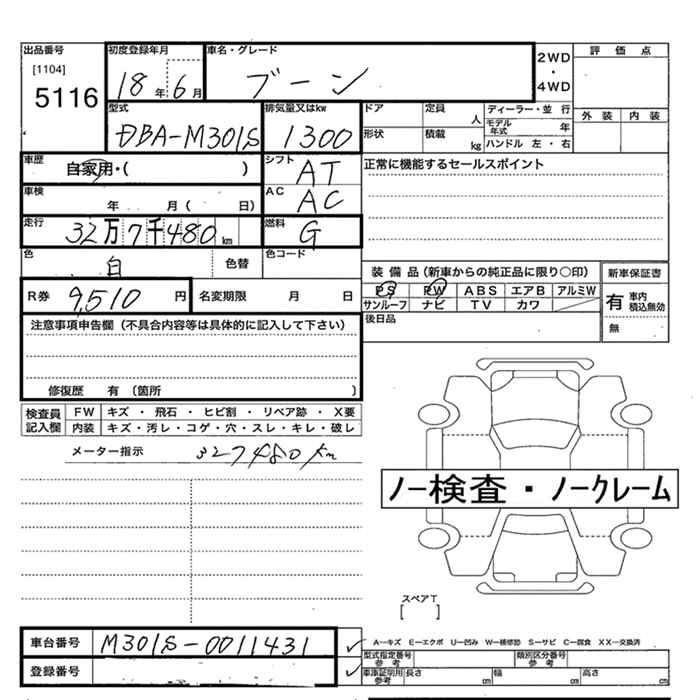 出品番号 初度登録年月 車名・グレード 2WD ・ 4WD 評 価 点
[1104] 5116 18 年 6 月 ブーン
型式 排気量又はkw ドア 定員 人 ディーラー・並 行 外 装 内 装
DBA-M301S 1300 形状 積載 kg モデル年式 年 ハンドル 左 ・ 右
車歴 自家用・( ) シフト AT 正常に機能するセールスポイント
車検 年 月( 日) AC AC
走行 32万7千480 km 燃料 G
色 白 色替 色コード
装 備 品(新車からの純正品に限り○印) 新車保証書
R券 9,510 円 名変期限 月 日 PS PW ABS エアB アルミW 有 車内 積込無効
サンルーフ ナビ TV カワ 無
注意事項申告欄(不具合内容等は具体的に記入して下さい) 後日品
修復歴 有(箇所 )
検査員記入欄 FW キズ ・ 飛石 ・ ヒビ割 ・ リペア跡 ・ X要
内装 キズ・汚レ・コゲ・穴・スレ・キレ・破レ
メーター指示 327480km
ノー検査・ノークレーム
スペアT
[ ]
車台番号 M301S-0011431 A―キズ E―エクボ U―凹み W―補修跡 S―サビ C―腐食 XX―交換済
登録番号 型式指定番号 参考 類別区分番号 参考
車庫証明用 参考 長さ cm 幅 cm 高さ cm